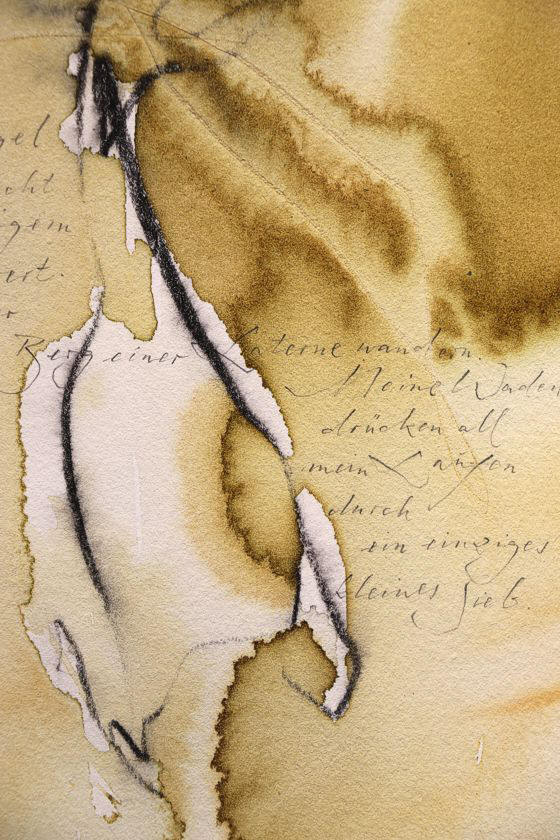 gel
cht
igem
ert.
r
Berg einer Laterne wandern.
Meine Waden
drücken all
mein Laufen
durch
ein einziges
kleines Sieb.